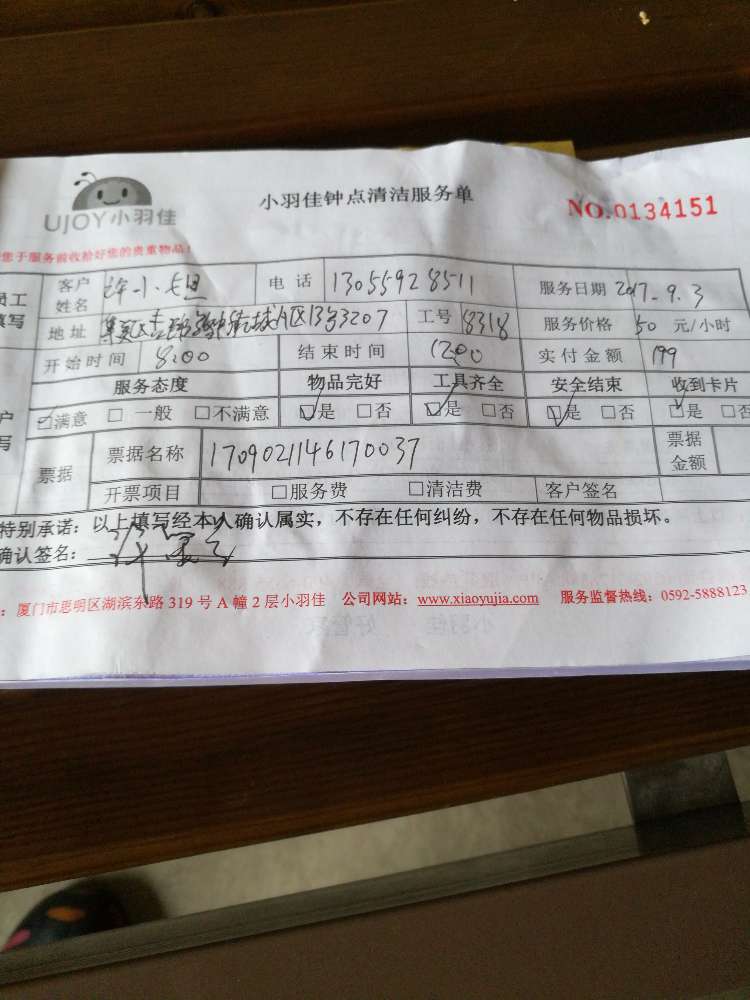 UJOY小羽佳
小羽佳钟点清洁服务单
NO.0134151
您于服务前收拾好您的贵重物品!
员工 客户姓名 许小姐 电话 13055928511 服务日期 2017-9.3
填写 地址 集美区 城A区13号3207 工号 8318 服务价格 50 元/小时
开始时间 8:00 结束时间 1200 实付金额 199
服务态度 物品完好 工具齐全 安全结束 收到卡片
户 ☑满意 □一般 □不满意 ☑是 □否 ☑是 □否 ☑是 □否 ☑是 □否
写 票据 票据名称 1709021146170037 票据金额
开票项目 □服务费 □清洁费 客户签名
特别承诺:以上填写经本人确认属实,不存在任何纠纷,不存在任何物品损坏。
确认签名:
:厦门市思明区湖滨东路 319 号 A 幢 2 层小羽佳 公司网站:www.xiaoyujia.com 服务监督热线:0592-5888123